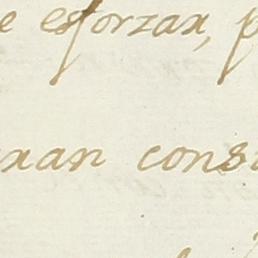 e esforzax, p
xan cons